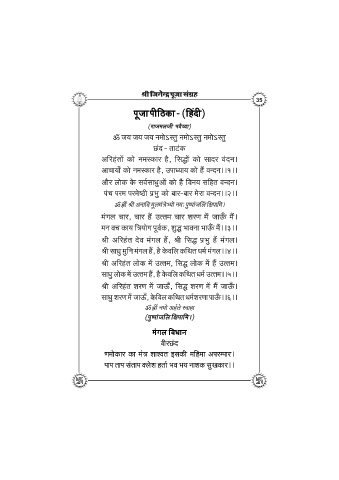 श्री जिनेन्द्र पूजा संग्रह
35
पूजा पीठिका - (हिंदी)
(राजमलजी पवैय्या)
ॐ जय जय जय नमोऽस्तु नमोऽस्तु नमोऽस्तु
छंद - ताटंक
अरिहंतों को नमस्कार है, सिद्धों को सादर वंदन।
आचार्यों को नमस्कार है, उपाध्याय को है वन्दन।।१।।
और लोक के सर्वसाधुओं को है विनय सहित वन्दन।
पंच परम परमेष्ठी प्रभु को बार-बार मेरा वन्दन।।२।।
ॐ ह्रीं श्री अनादि मूलमंत्रेभ्यो नमः पुष्पांजलि क्षिपामि।
मंगल चार, चार हैं उत्तम चार शरण में जाऊँ मैं।
मन वच काय त्रियोग पूर्वक, शुद्ध भावना भाऊँ मैं।।३।।
श्री अरिहंत देव मंगल हैं, श्री सिद्ध प्रभु हैं मंगल।
श्री साधु मुनि मंगल हैं, है केवलि कथित धर्म मंगल।।४।।
श्री अरिहंत लोक में उत्तम, सिद्ध लोक में हैं उत्तम।
साधु लोक में उत्तम हैं, है केवलि कथित धर्म उत्तम।।५।।
श्री अरिहंत शरण में जाऊँ, सिद्ध शरण में मैं जाऊँ।
साधु शरण में जाऊँ, केवलि कथित धर्मशरणा पाऊँ।।६।।
ॐ ह्रीं नमो अर्हते स्वाहा
(पुष्पांजलि क्षिपामि।)
मंगल विधान
वीरछंद
णमोकार का मंत्र शाश्वत इसकी महिमा अपरम्पार।
पाप ताप संताप क्लेश हर्ता भव भय नाशक सुखकार।।